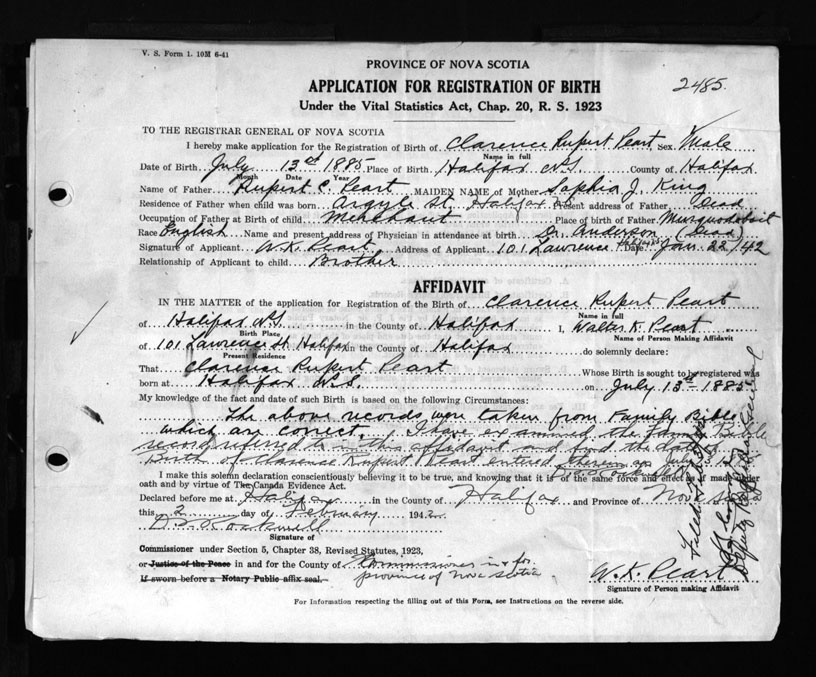 V. S. Form 1. 10M 6-41
PROVINCE OF NOVA SCOTIA
APPLICATION FOR REGISTRATION OF BIRTH
2485
Under the Vital Statistics Act, Chap. 20, R. S. 1923
TO THE REGISTRAR GENERAL OF NOVA SCOTIA
I hereby make application for the Registration of Birth of Clarence Rupert Peart Sex Male
Name in full
Date of Birth July 13th 1885 Place of Birth Halifax N.S. County of Halifax
Month Date Year
Name of Father Rupert C. Peart MAIDEN NAME of Mother Sophia J. King
Residence of Father when child was born Argyle St. Halifax N.S. Present address of Father Dead
Occupation of Father at Birth of child Merchant Place of birth of Father Musquodoboit
Race English Name and present address of Physician in attendance at birth Dr. Anderson (Dead)
Signature of Applicant W. K. Peart Address of Applicant 101 Lawrence Halifax Date Jan. 22/42
Relationship of Applicant to child Brother
AFFIDAVIT
IN THE MATTER of the application for Registration of the Birth of Clarence Rupert Peart
Name in full
of Halifax N.S. in the County of Halifax I, Walter K. Peart
Birth Place Name of Person Making Affidavit
of 101 Lawrence St Halifax in the County of Halifax do solemnly declare:
Present Residence
That Clarence Rupert Peart Whose Birth is sought to be registered was
born at Halifax N.S. on July 13th 1885
My knowledge of the fact and date of such Birth is based on the following Circumstances:
The above records were taken from Family Bible
which are correct. I have examined the Family Bible
record referred to in this affidavit and find the date of
Birth of Clarence Rupert Peart entered therein as July 13
I make this solemn declaration conscientiously believing it to be true, and knowing that it is of the same force and effect as if made under
oath and by virtue of The Canada Evidence Act.
Declared before me at Halifax in the County of Halifax and Province of Nova Scotia
this 2 day of February 1942
Signature of
Commissioner under Section 5, Chapter 38, Revised Statutes, 1923,
or Justice of the Peace in and for the County of Commissioner in & for
If sworn before a Notary Public affix seal. province of Nova Scotia
W. K. Peart
Signature of Person making Affidavit
For Information respecting the filling out of this Form, see Instructions on the reverse side.